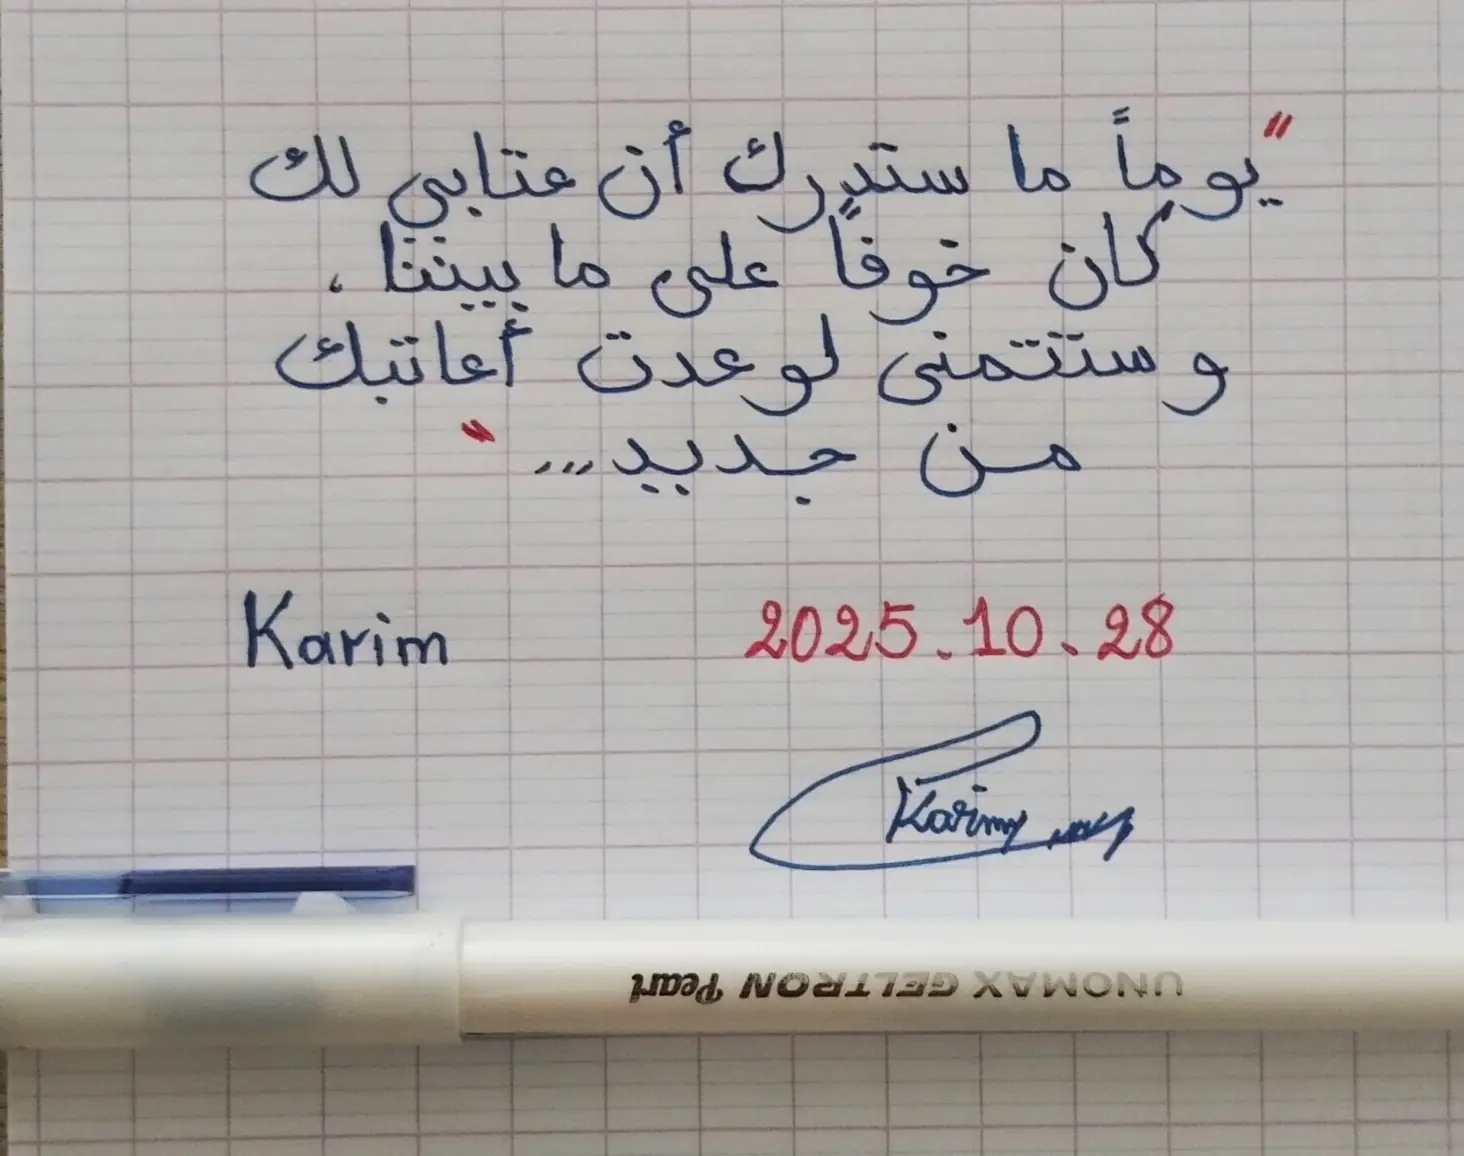 "يوماً ما ستدرك أن عتابي لك
كان خوفاً على ما بيننا،
وستتمنى لو عدت أعاتبك
من جديد..."
Karim 2025.10.28
Karim
UNOMAX GELTRON Pearl